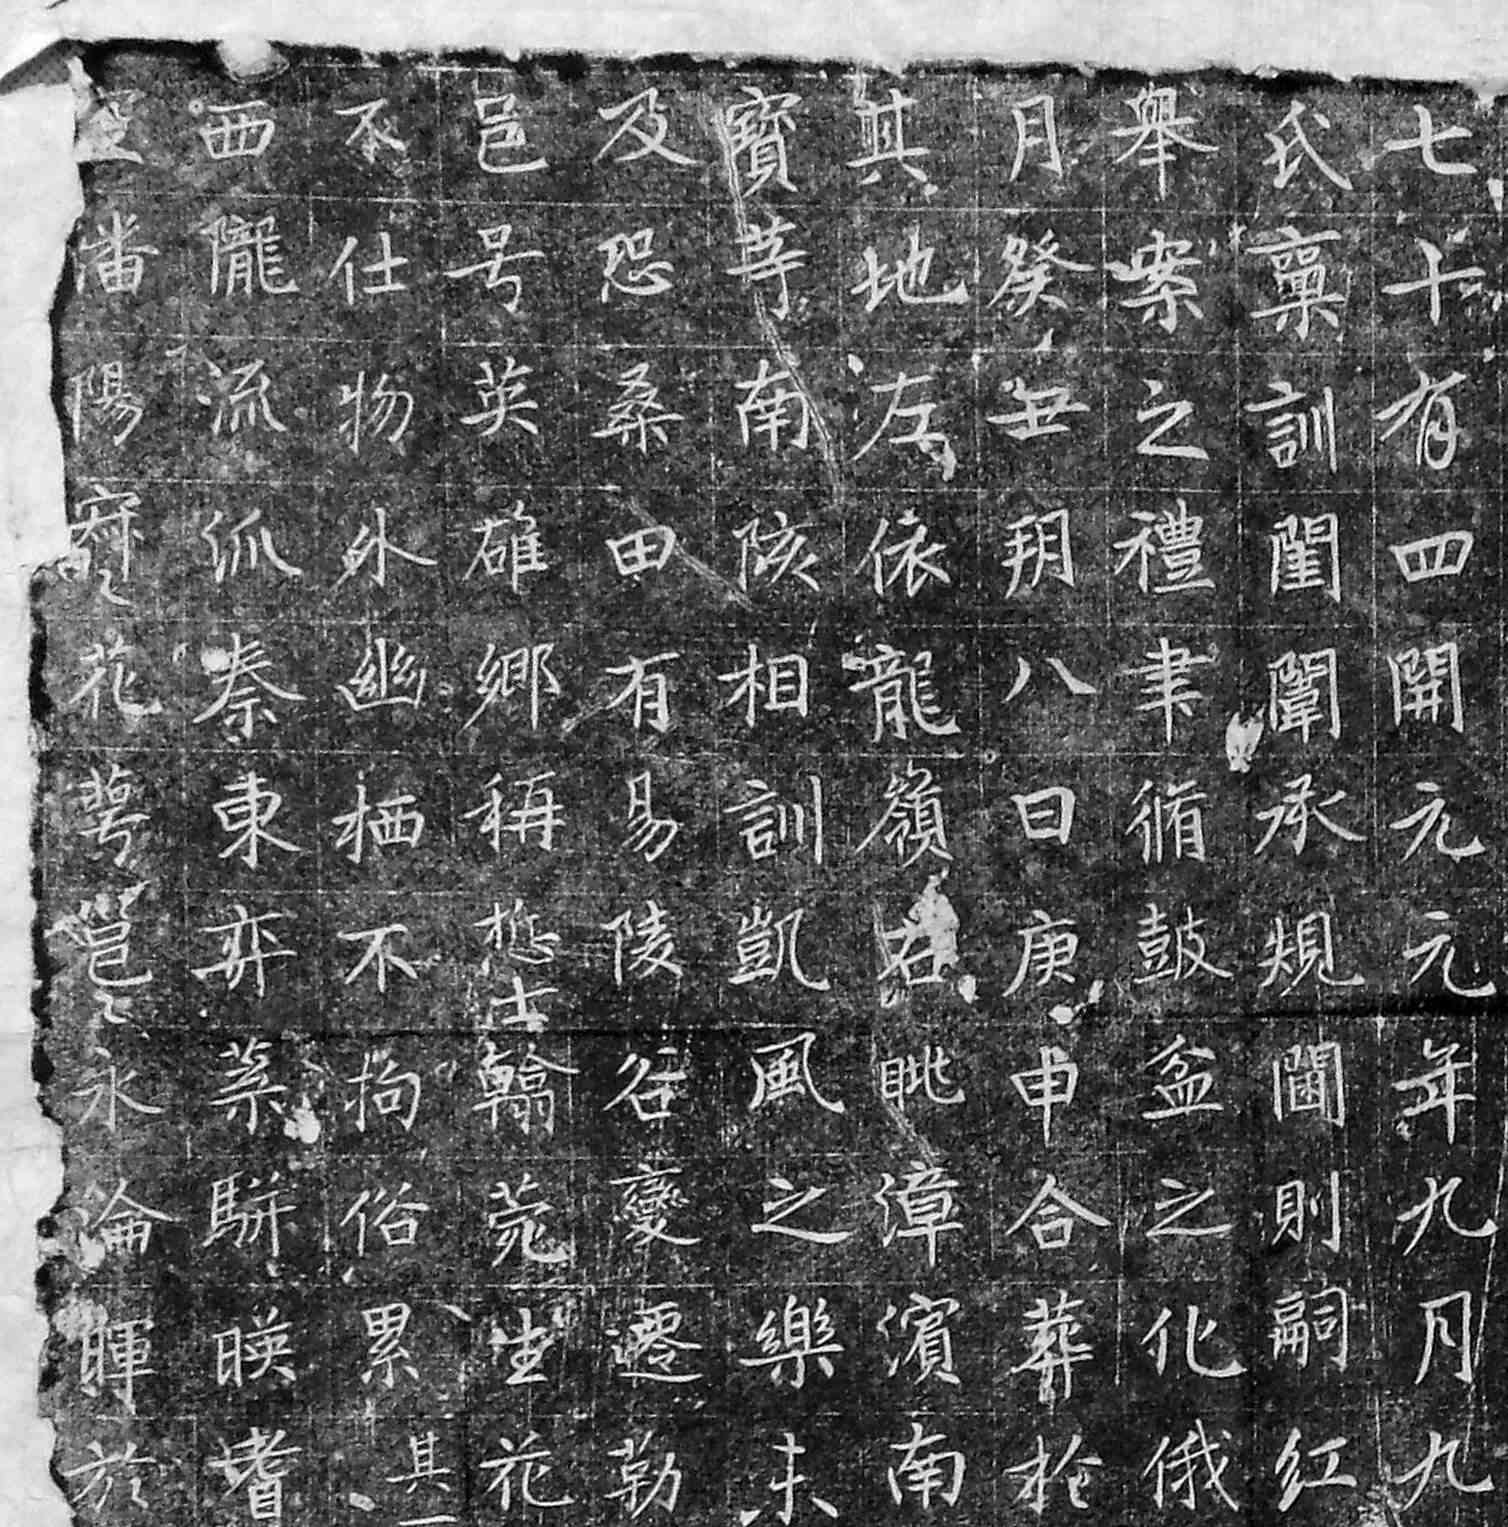 七十有四開元元年九月九
氏稟訓閨闈承規閫則嗣紅
舉案之禮聿脩鼓盆之化俄
月癸丑朔八日庚申合葬於
其地左依龍嶺右眺漳濱南
寶等南陔相訓凱風之樂未
及恐桑田有易陵谷變遷勒
邑号英雄鄉稱悊士翰菀生花
不仕物外幽栖不拘俗累其一
西隴流派秦東弈葉駢暎耆
潘陽寂〻花萼邕〻永淪暉於